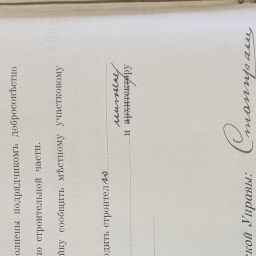 олнены подрядчикомъ добросовѣстно
по строительной части.
йку сообщить мѣстному участковому
одить строителю
и архитектору
кой Управы: